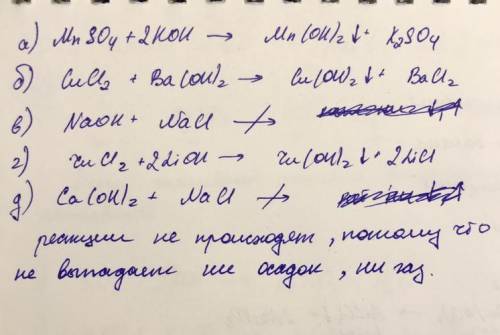 а) MnSO4 + 2KOH → Mn(OH)2↓ + K2SO4
б) CuCl2 + Ba(OH)2 → Cu(OH)2↓ + BaCl2
в) NaOH + NaCl ↛
г) ZnCl2 + 2LiOH → Zn(OH)2↓ + 2LiCl
д) Ca(OH)2 + NaCl ↛
реакции не происходят, потому что
не выпадает ни осадок, ни газ.